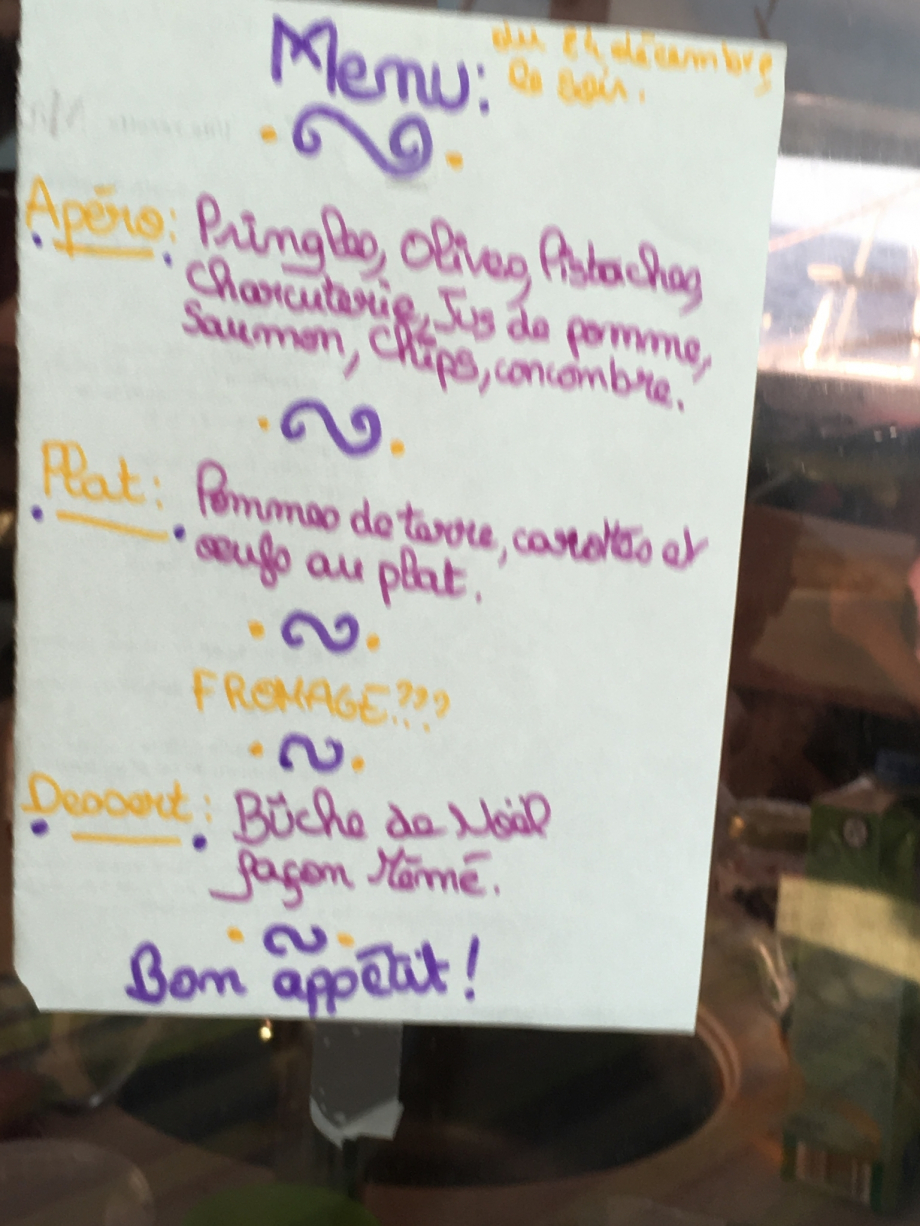 Menu:
du 24 décembre
le soir.
Apéro: Pringles, Olives, Pistaches,
Charcuterie, Jus de pomme,
Saumon, Chips, concombre.
Plat: Pommes de terre, carottes et
oeufs au plat.
FROMAGE???
Dessert: Bûche de Noël
façon Mémé.
Bon appétit!